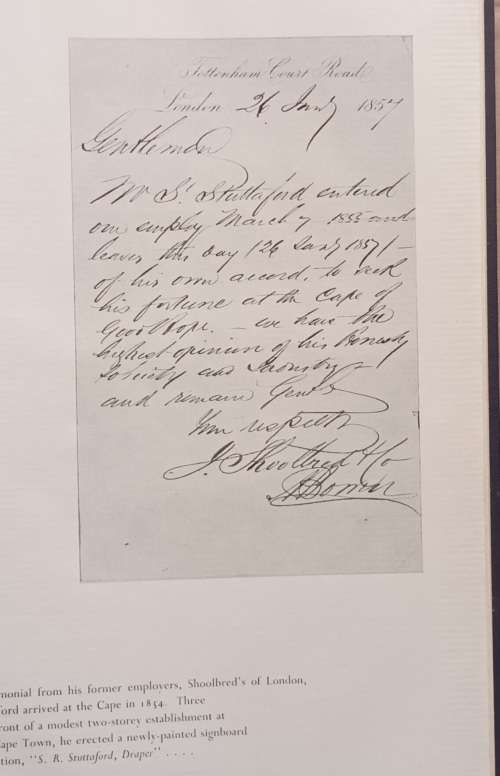 Tottenham Court Road
London 26 Jany 1857
Gentlemen
Mr S. Stuttaford entered
our employ March 7 1855 and
leaves this Day (26 Jany 1857) –
of his own accord, to seek
his fortune at the Cape of
Good Hope. – we have the
highest opinion of his Honesty
Sobriety and Industry –
and remain Gents
Your respectly
J. Shoolbred & Co
monial from his former employers, Shoolbred's of London,
ford arrived at the Cape in 1854. Three
ront of a modest two-storey establishment at
ape Town, he erected a newly-painted signboard
tion, "S. R. Stuttaford, Draper" . . . .